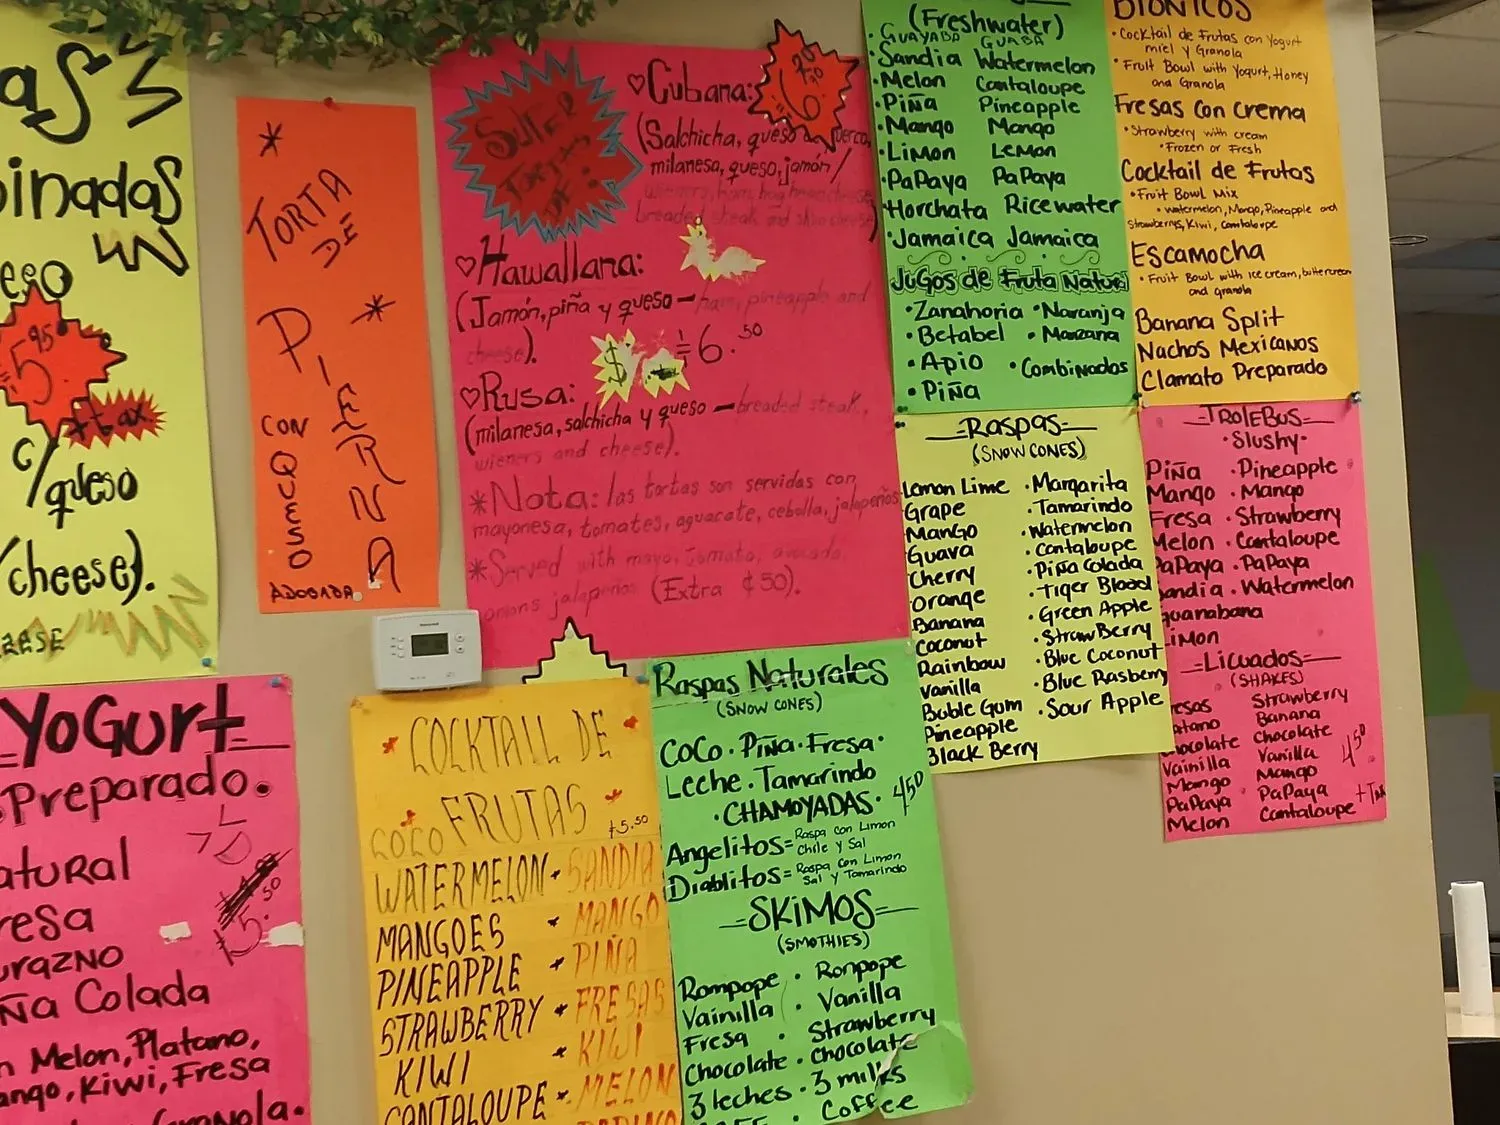 as
binadas
eso
5.95
+tax
c/
queso
/cheese).
EESE
*TORTA
DE
PIERNA*
CON
QUESO
ADOBADA.
SUPER
TORTAS
DF:
♡Cubana:
(Salchicha, queso de puerco,
milanesa, queso, jamón/
wieners, ham, hog head cheese,
breaded steak and
♡Hawallana:
(Jamón, piña y queso — ham, pineapple and
cheese).
$ 6.50
♡Rusa:
(milanesa, salchicha y queso — breaded steak,
wieners and cheese).
*Nota: las tortas son servidas con
mayonesa, tomates, aguacate, cebolla, jalapeños
*Served with mayo, tomato, avocado,
onions jalapeños (Extra ¢50).
(Freshwater)
• GUAYABA GUABA
•Sandia Watermelon
•Melon Cantaloupe
•Piña Pineapple
•Mango Mango
•Limon Lemon
•PaPaya PaPaya
•Horchata Ricewater
•Jamaica Jamaica
JUGOS de Fruta Natural
•Zanahoria •Naranja
•Betabel •Manzana
•Apio •Combinados
•Piña
BIONICOS
•Cocktail de Frutas con Yogurt
miel y Granola
•Fruit Bowl with Yogurt, Honey
and Granola
Fresas Con Crema
•Strawberry with cream
•Frozen or Fresh
Cocktail de Frutas
•Fruit Bowl Mix
•watermelon, Mango, Pineapple and
strawberrys, Kiwi, Cantaloupe
Escamocha
•Fruit Bowl with ice cream, buttercream
and granola
Banana Split
Nachos Mexicanos
Clamato Preparado
=Raspas=
(SNOW CONES)
Lemon Lime •Margarita
Grape •Tamarindo
Mango •Watermelon
Guava •Cantaloupe
Cherry •Piña Colada
Orange •Tiger Blood
Banana •Green Apple
Coconut •StrawBerry
Rainbow •Blue Coconut
Vanilla •Blue Rasberry
Buble Gum •Sour Apple
Pineapple
Black Berry
=TROLEBUS=
•Slushy•
Piña •Pineapple
Mango •Mango
Fresa •Strawberry
Melon •Cantaloupe
PaPaya •PaPaya
andia •Watermelon
guanabana
Limon
=Licuados=
(SHAKES)
resas Strawberry
latano Banana
hocolate Chocolate
Vainilla Vanilla
Mango Mango
PaPaya PaPaya
Melon Cantaloupe
4.50
+Tax
=YoGurt=
Preparado.
atural
resa
urazno
ña Colada
5.50
n Melon, Platano,
ango, Kiwi, Fresa
Granola.
COCKTAIL DE
FRUTAS
COCO
+5.50
WATERMELON • SANDIA
MANGOES • MANGO
PINEAPPLE • PIÑA
STRAWBERRY • FRESAS
KIWI • KIWI
CANTALOUPE • MELON
Raspas Naturales
(SNOW CONES)
Coco • Piña • Fresa •
Leche • Tamarindo
•CHAMOYADAS• 4.50
Angelitos= Raspa con Limon
Chile y Sal
Diablitos= Raspa con Limon
Sal y Tamarindo
=SKIMOS=
(SMOTHIES)
Rompope • Ronpope
Vainilla • Vanilla
Fresa • Strawberry
Chocolate • Chocolate
3 leches • 3 milks
• Coffee